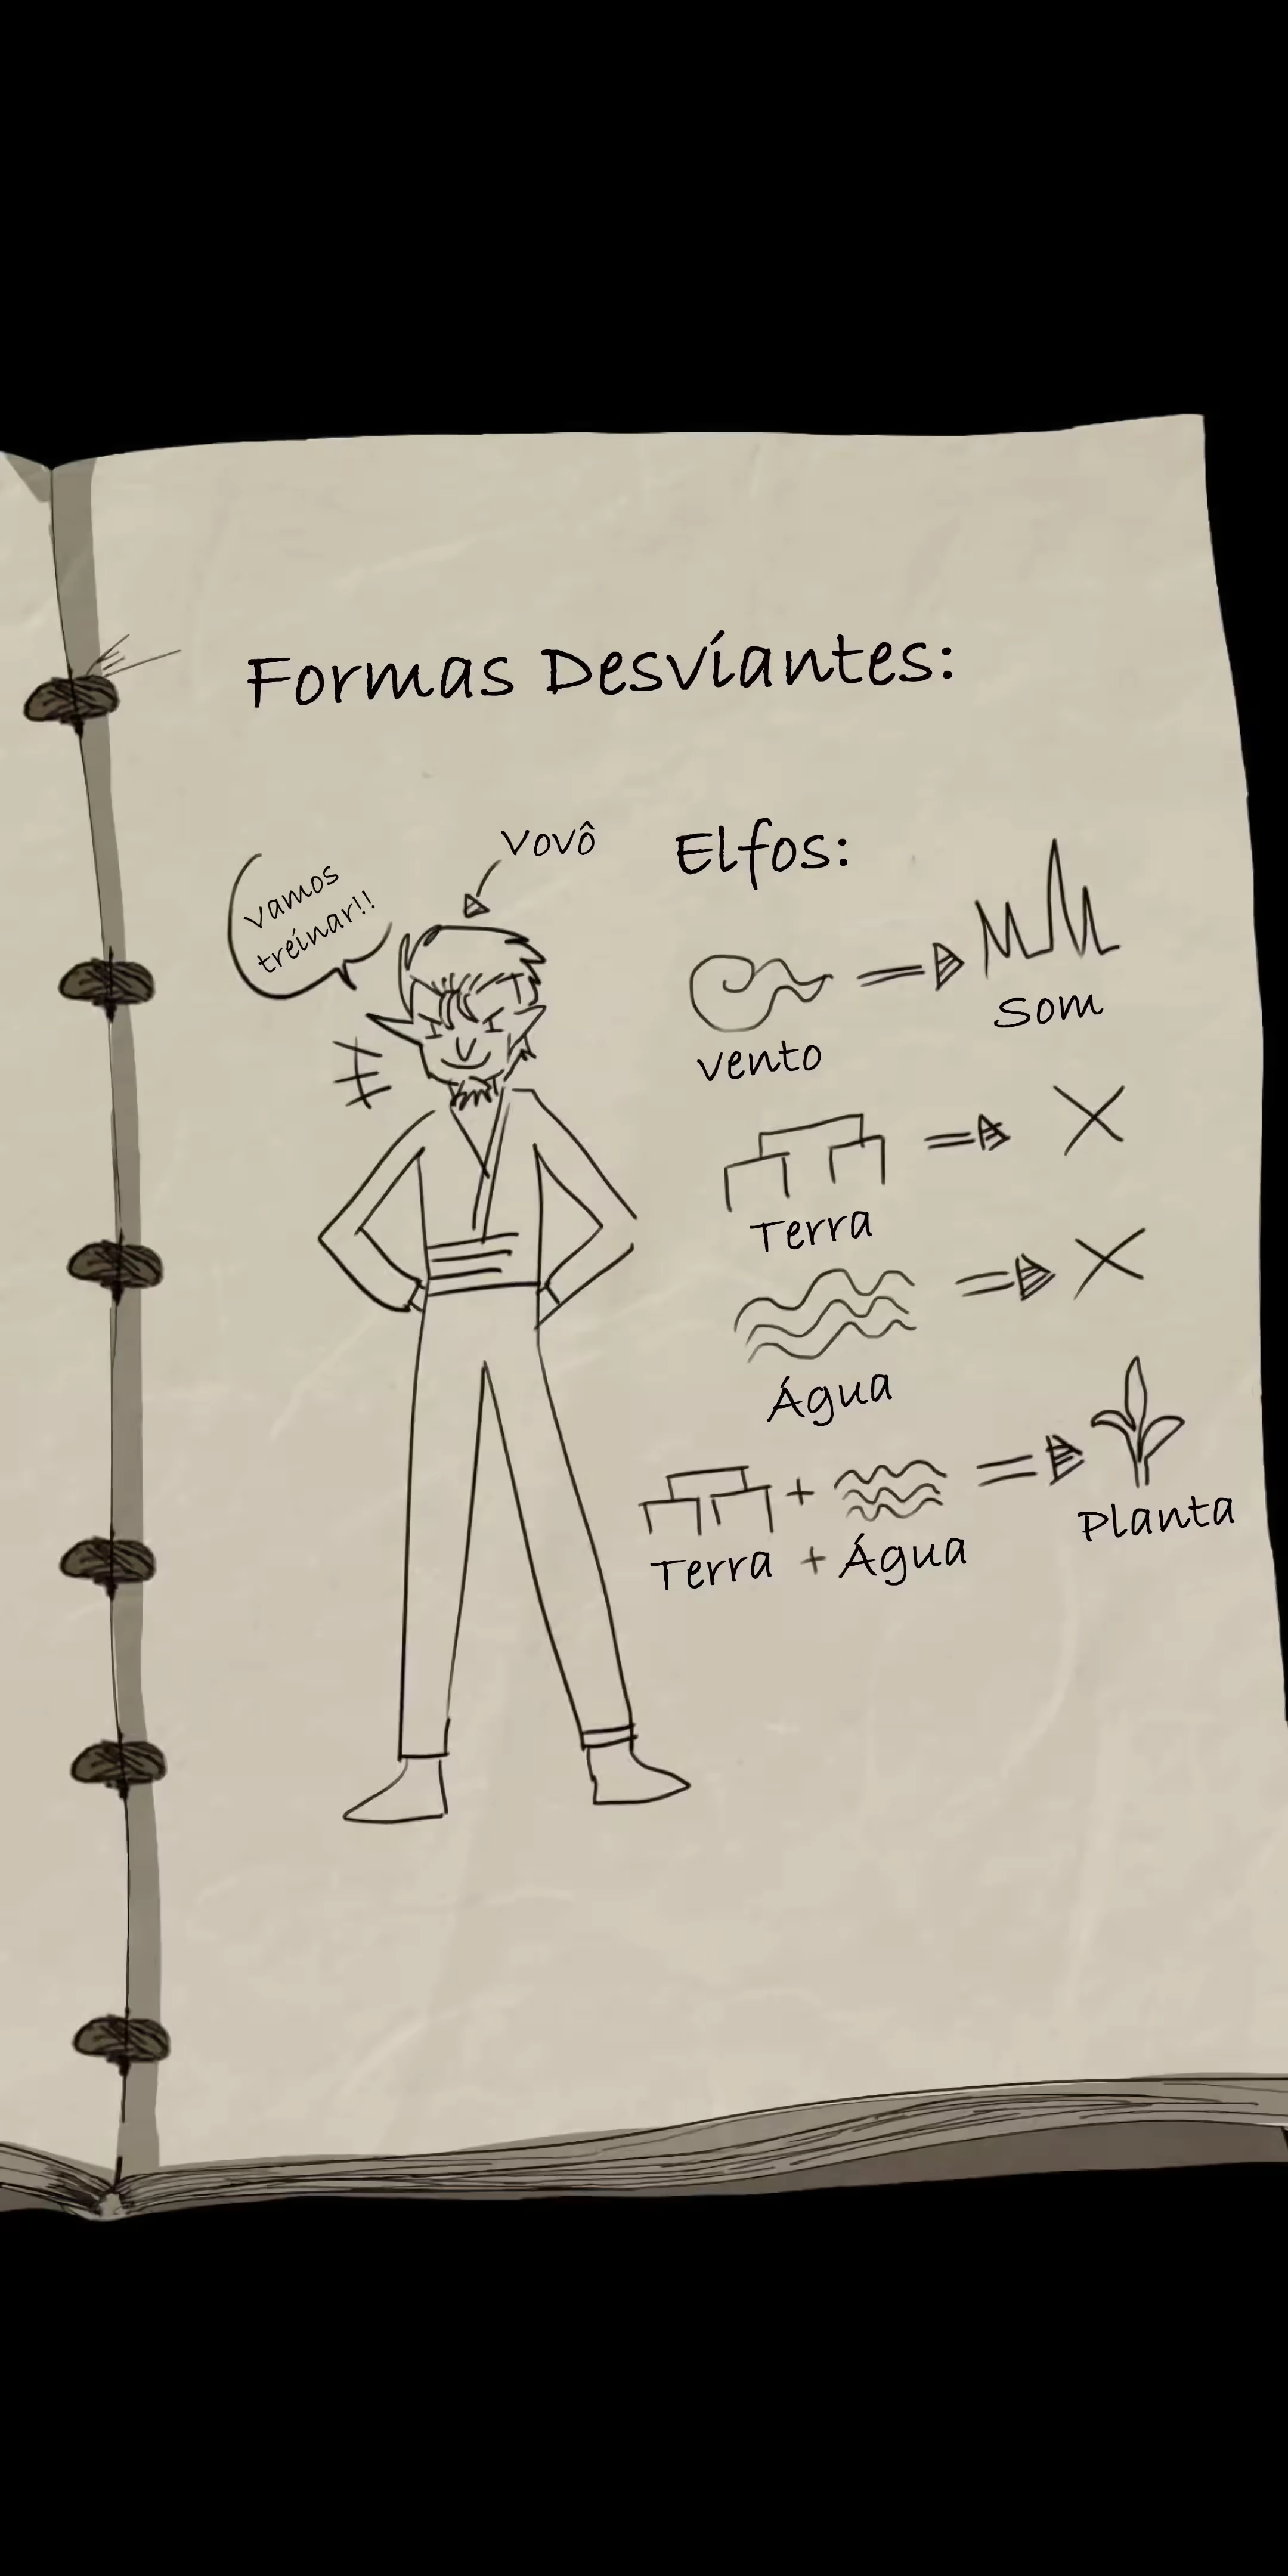 Formas Desviantes:
vovô
vamos
treinar!!
Elfos:
vento
Som
Terra
Água
Terra + Água
Planta